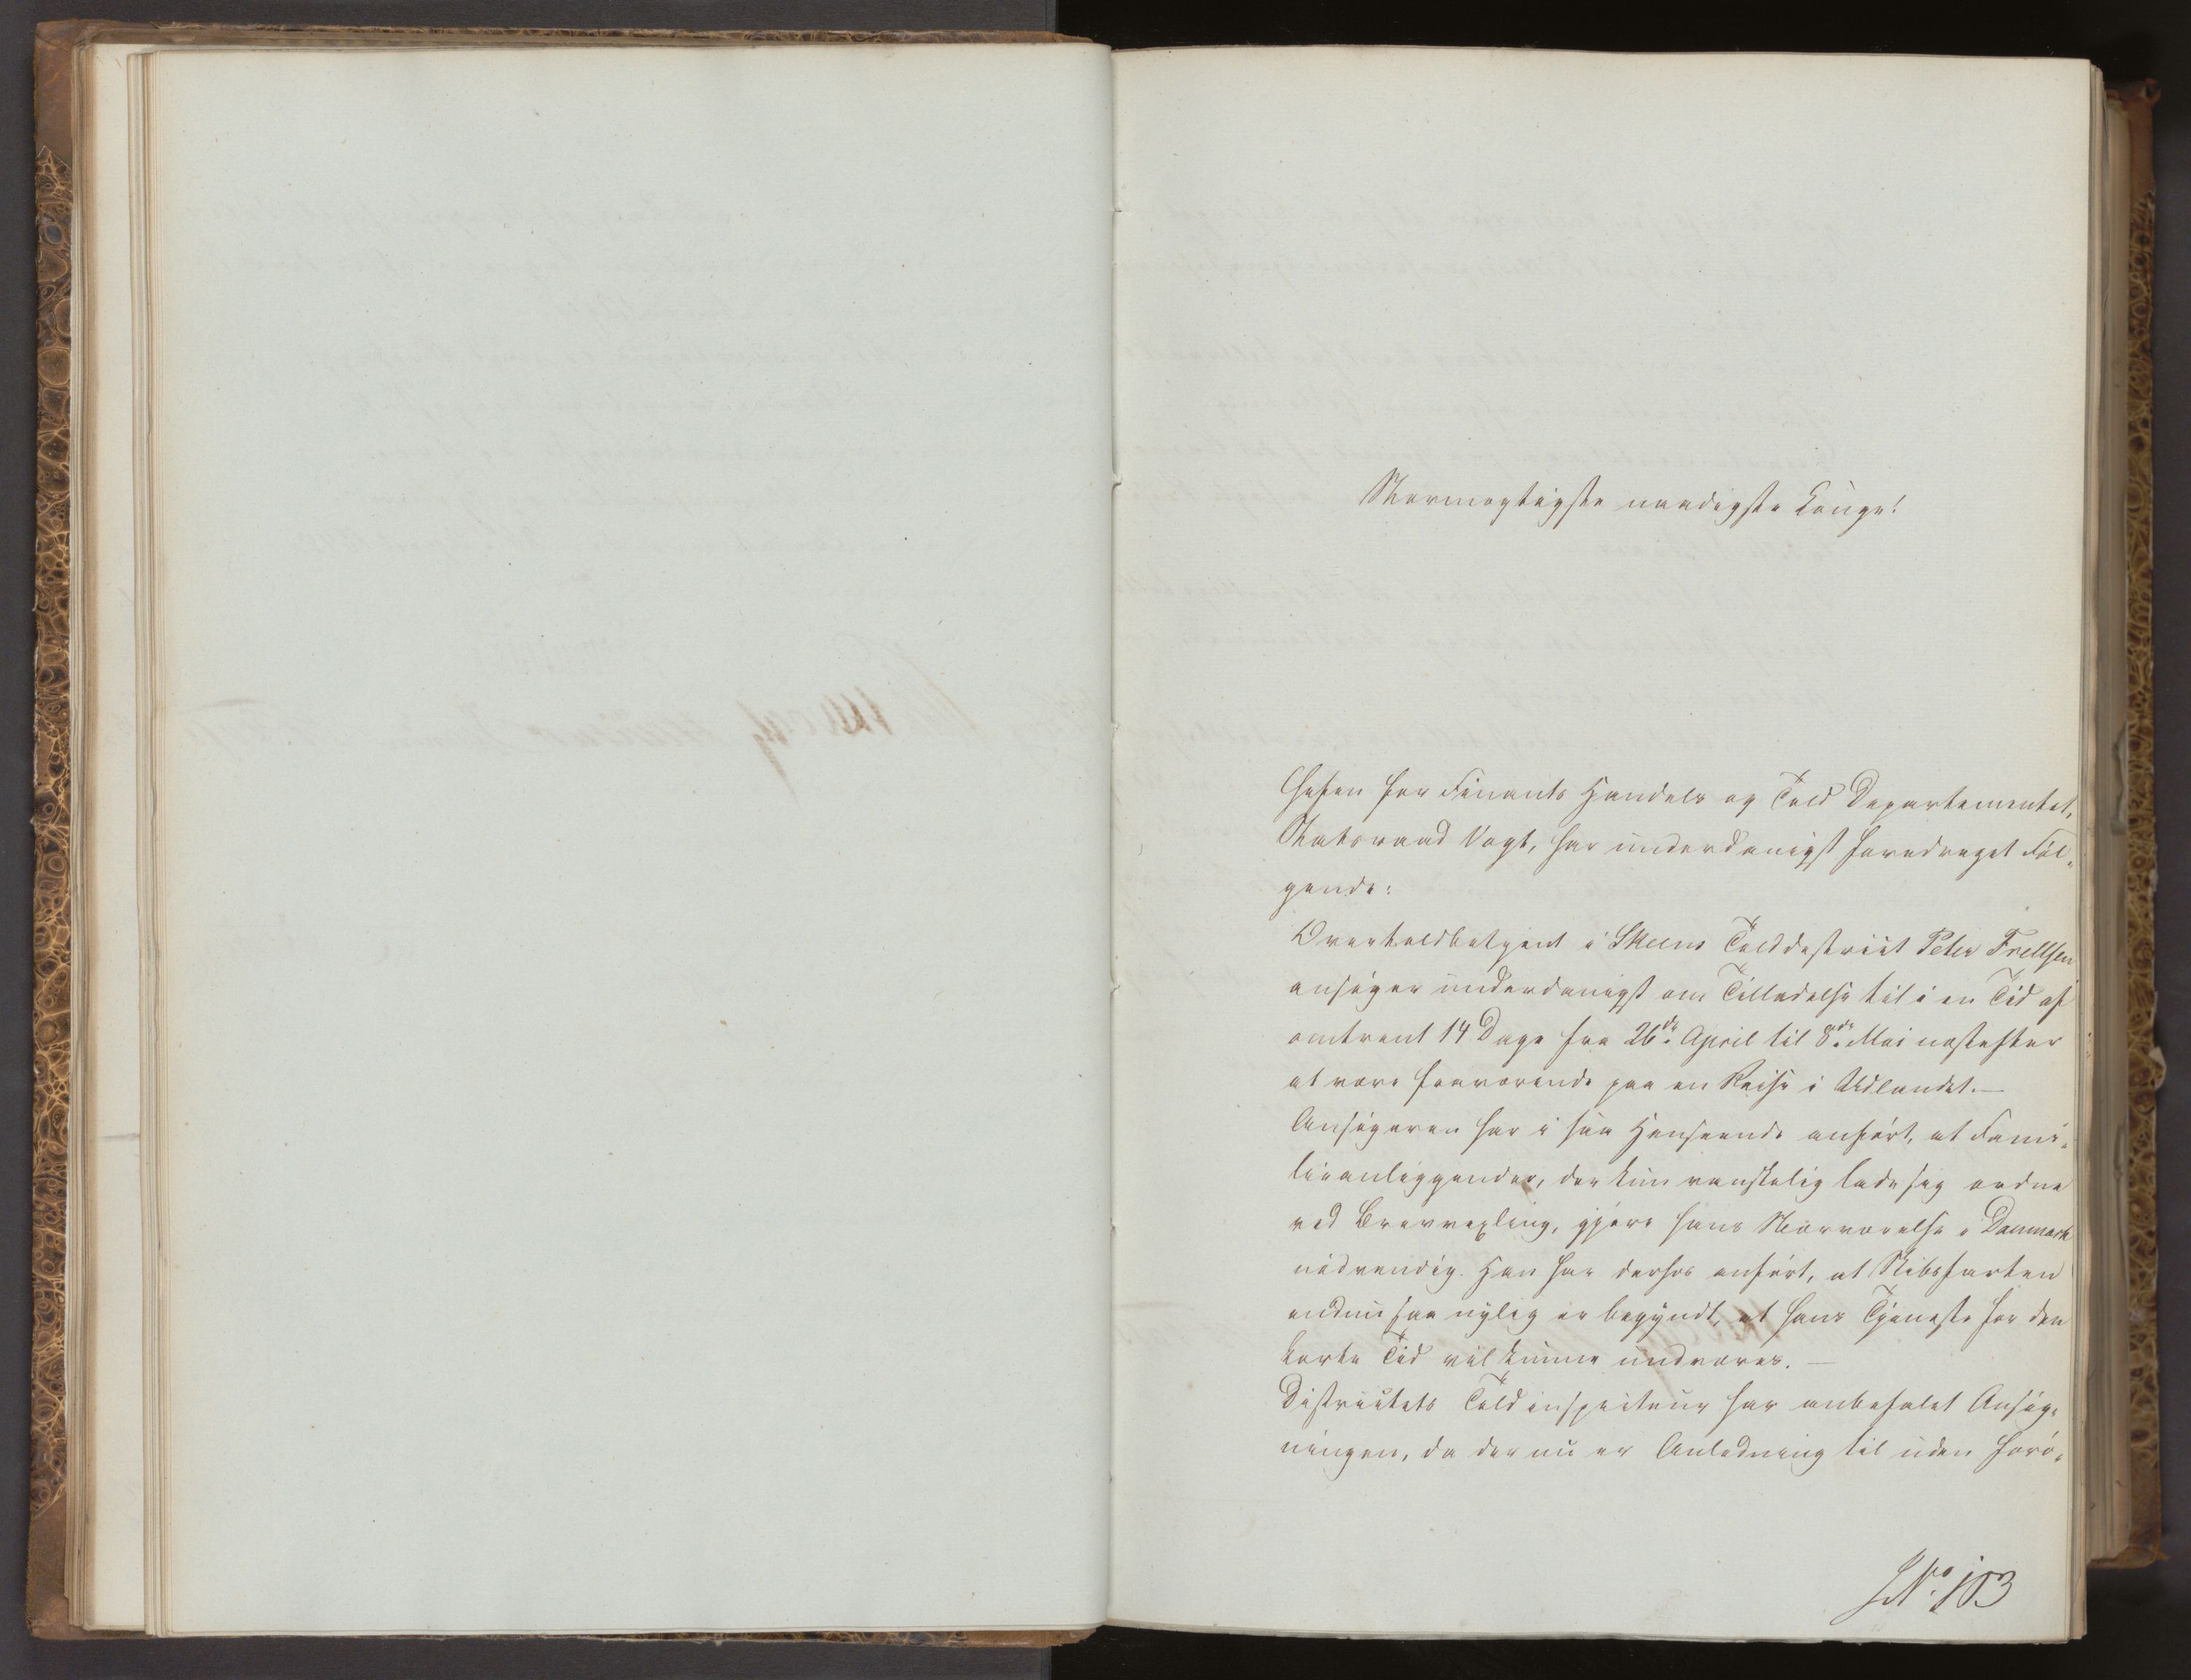 Stormægtigste naadigste Konge!
Chefen for Finants Handels og Told Departementet,
Statsraad Vogt, har underdanigst foredraget Føl-
gende:
Overtoldbetjent i Skeens Tolddistrict Peter Frellsen
ansøger underdanigst om Tilladelse til i en Tid af
omtrent 14 Dage fra 26de April til 8de Mai næstefter
at være fraværende paa en Reise i Udlandet.—
Ansøgeren har i saa Henseende anført, at Fami-
lieanliggender, der kun vanskelig lade sig ordne
ved Brevvexling, gjøre hans Nærværelse i Danmark
nødvendig. Han har derhos anført, at Skibsfarten
endnu saa nylig er begyndt, at hans Tjeneste for den
korte Tid vil kunne undværes.—
Districtets Toldinspecteur har anbefalet Ansøg-
ningen, da der nu er Anledning til uden Forø-
J.No. 103